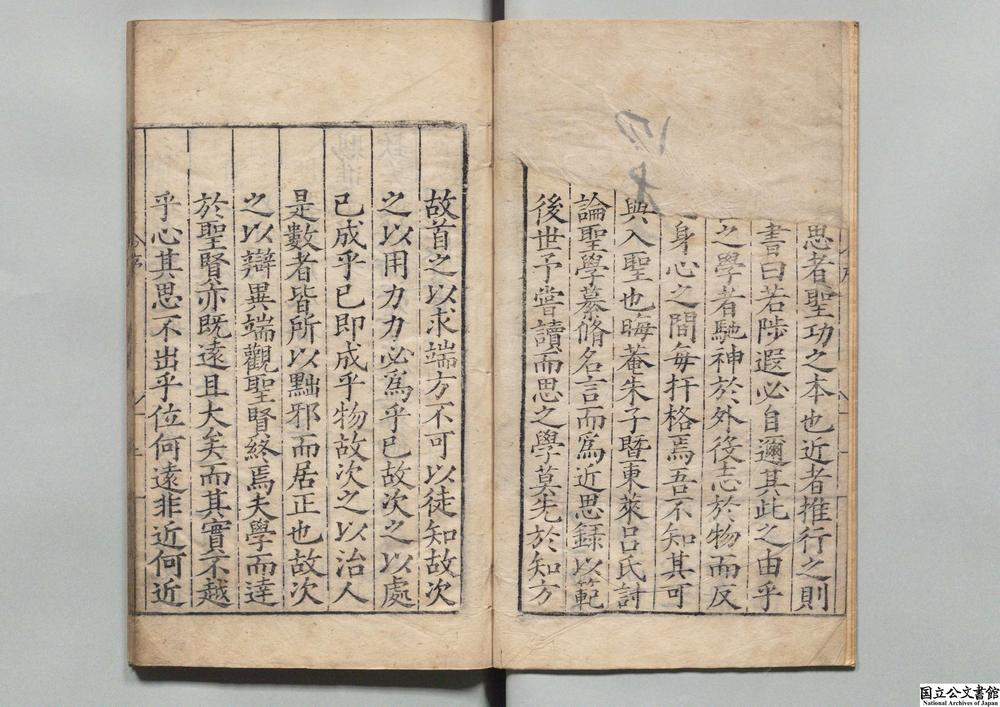 思者聖功之本也近者推行之則
書曰若陟遐必自邇其此之由乎
之學者馳神於外役志於物而反
身心之間每扞格焉吾不知其可
與入聖也晦菴朱子暨東萊呂氏討
論聖學纂脩名言而爲近思録以範
後世予嘗讀而思之學莫先於知方
故首之以求端方不可以徒知故次
之以用力力必爲乎已故次之以處
已成乎已即成乎物故次之以治人
是數者皆所以黜邪而居正也故次
之以辯異端觀聖賢終焉夫學而達
於聖賢亦既遠且大矣而其實不越
乎心其思不出乎位何遠非近何近
国立公文書館
National Archives of Japan